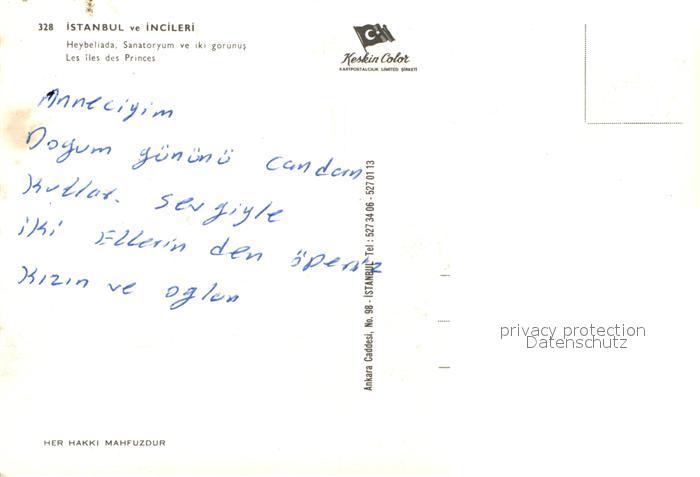 328 İSTANBUL ve İNCİLERİ
Heybeliada, Sanatoryum ve iki görünüş
Les îles des Princes
Keskin Color
KARTPOSTALCILIK LIMITED ŞİRKETİ
Anneciyim
Doğum gününü candan
Kutlar. sevgiyle
iki Ellerin den öperiz
Kızın ve oğlun
Ankara Caddesi, No. 98 - İSTANBUL Tel : 527 34 06 - 527 01 13
privacy protection
Datenschutz
HER HAKKI MAHFUZDUR